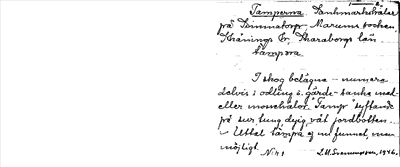 Tamperna. Sankmarksträter
på Simmatorp, Marums socken,
Skånings hr, Skaraborgs län
tåmpera
I skog belägna – numera
delvis i odling i gärde – sanka mad-
eller mossehålor. "Tamp" syftande
på sur, tung, dyig, våt jordbotten.
– Uttal tåmpa ej nu funnet, men
möjligt.
N:r 1 L.M. Svennungsson, 1946.